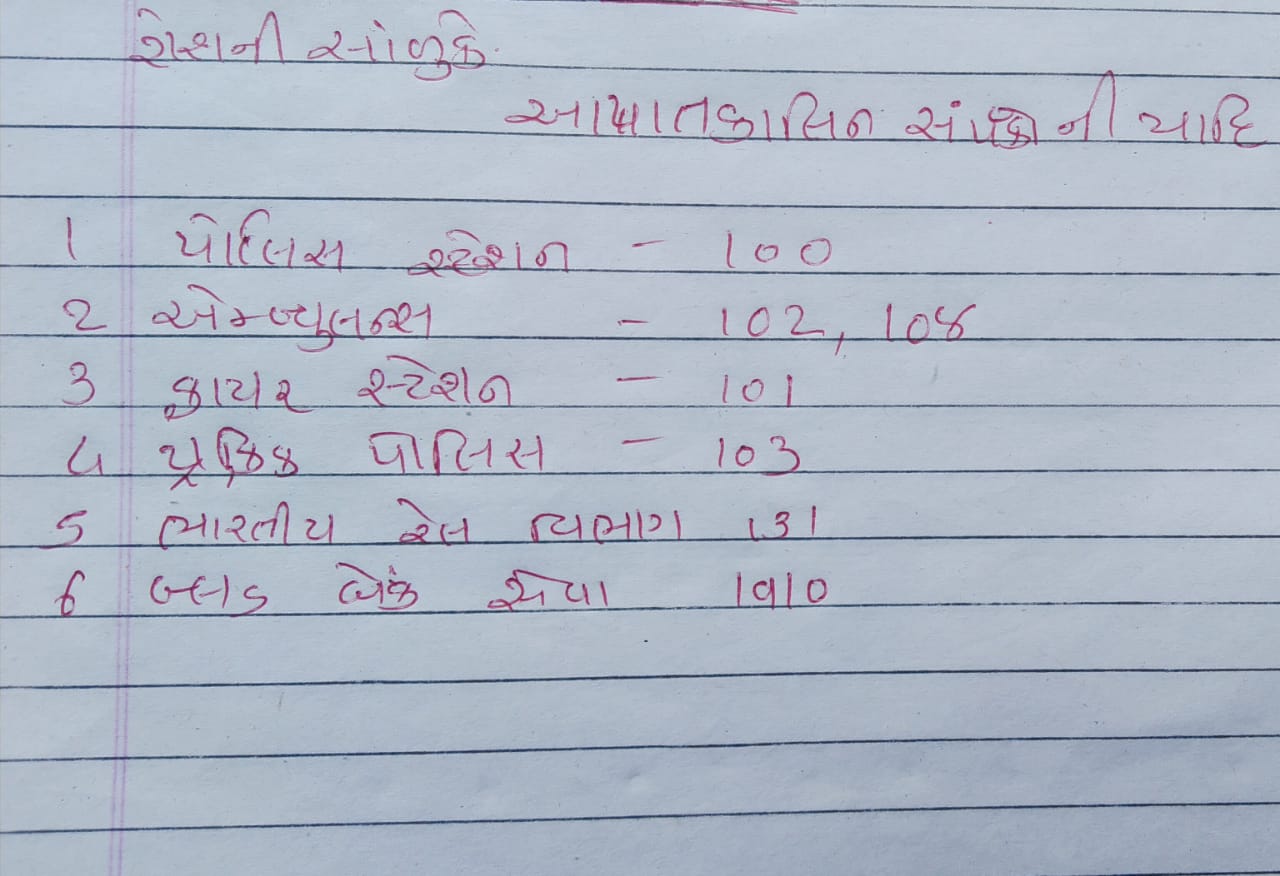 રોશની સોલુકે
આપાતકાલિન સંપર્કો ની યાદિ
1 પોલિસ સ્ટેશન - 100
2 એમ્બ્યુલન્સ - 102, 108
3 ફાયર સ્ટેશન - 101
4 ટ્રેફિક પોલિસ - 103
5 ભારતીય રેલ વ્યિભાગ 131
6 બ્લડ બેંક સેવા 1910